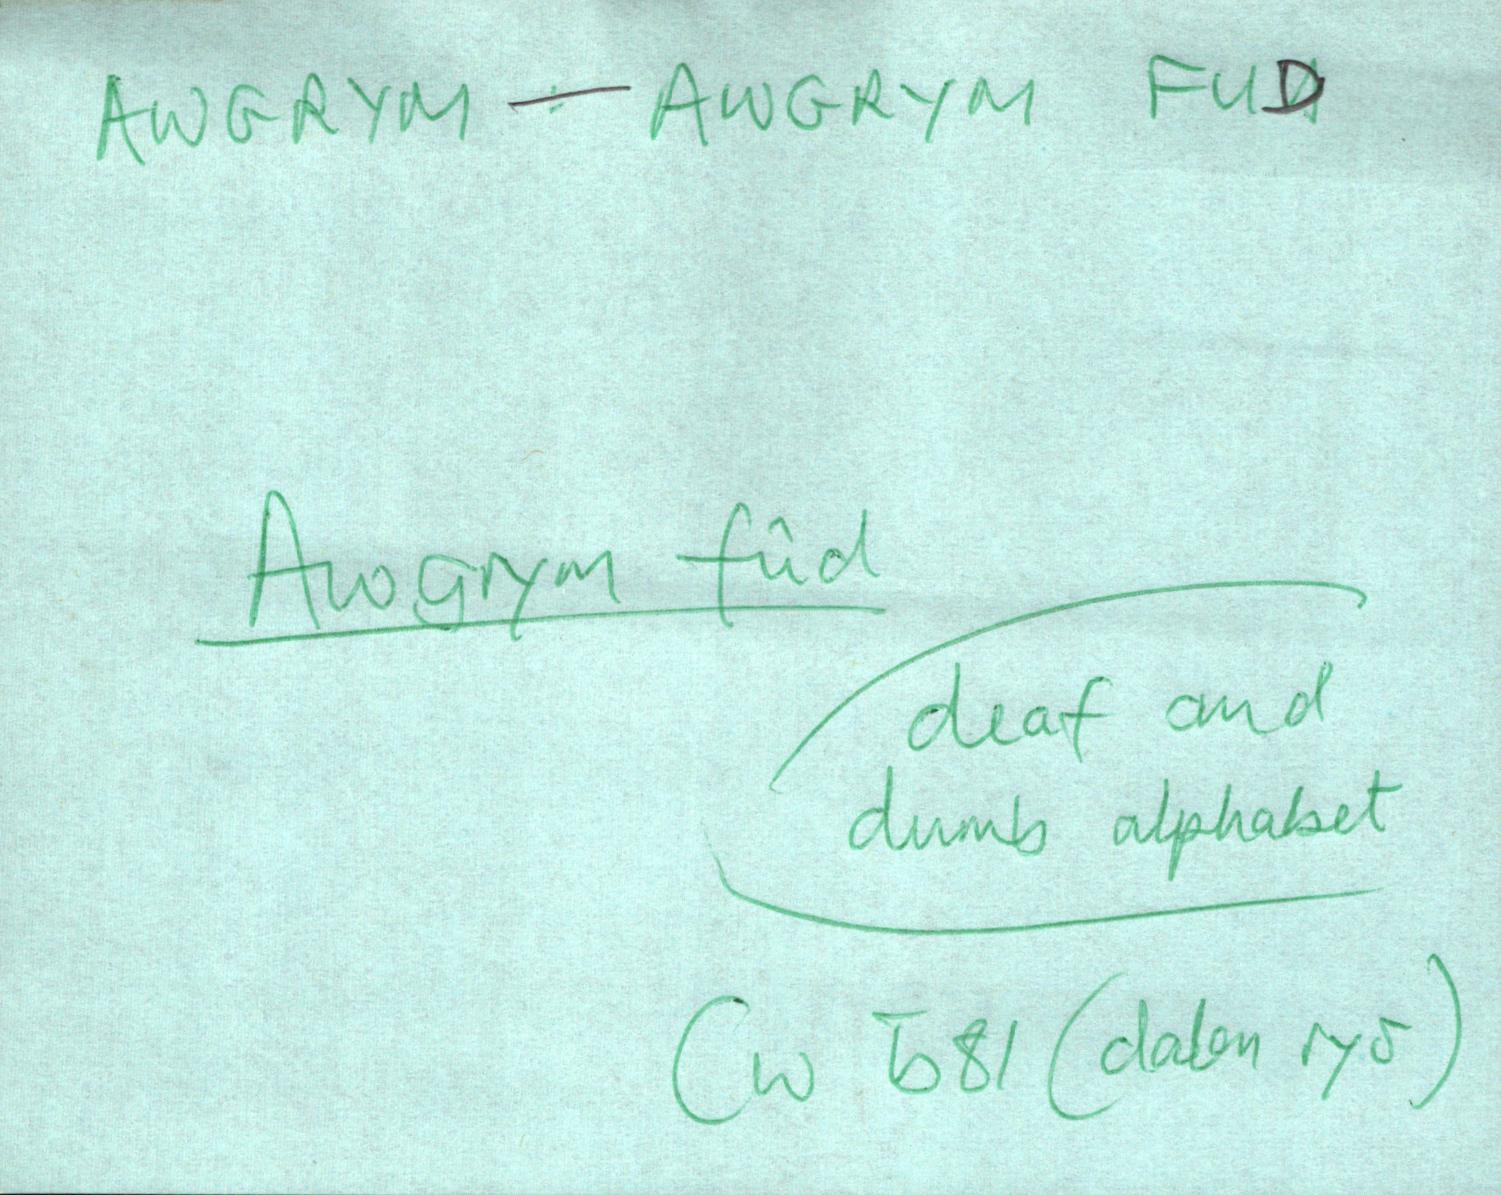 AWGRYM — AWGRYM FUD
Awgrym fûd
(deaf and
dumb alphabet
(W b81 (dalen rydd)